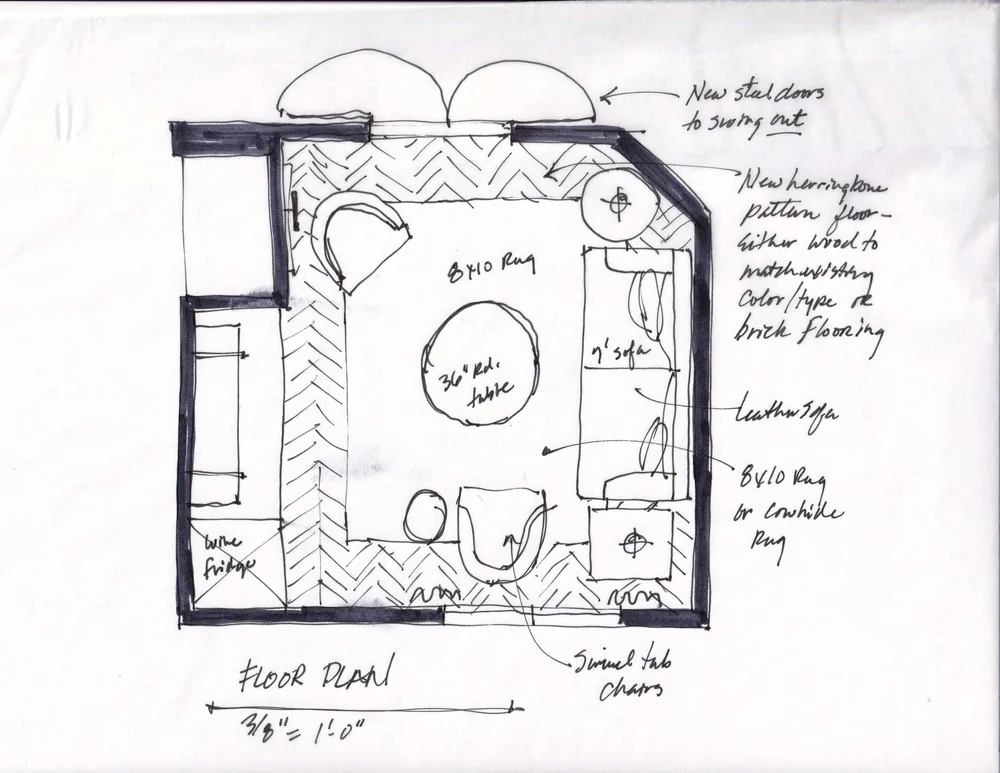 New steel doors
to swing out
New herringbone
pattern floor-
Either wood to
match existing
color/type or
brick flooring
8x10 Rug
7' sofa
36" Rd.
table
Leather Sofa
8x10 Rug
or Cowhide
Rug
Wine
fridge
Swivel tub
chairs
FLOOR PLAN
3/8" = 1'-0"